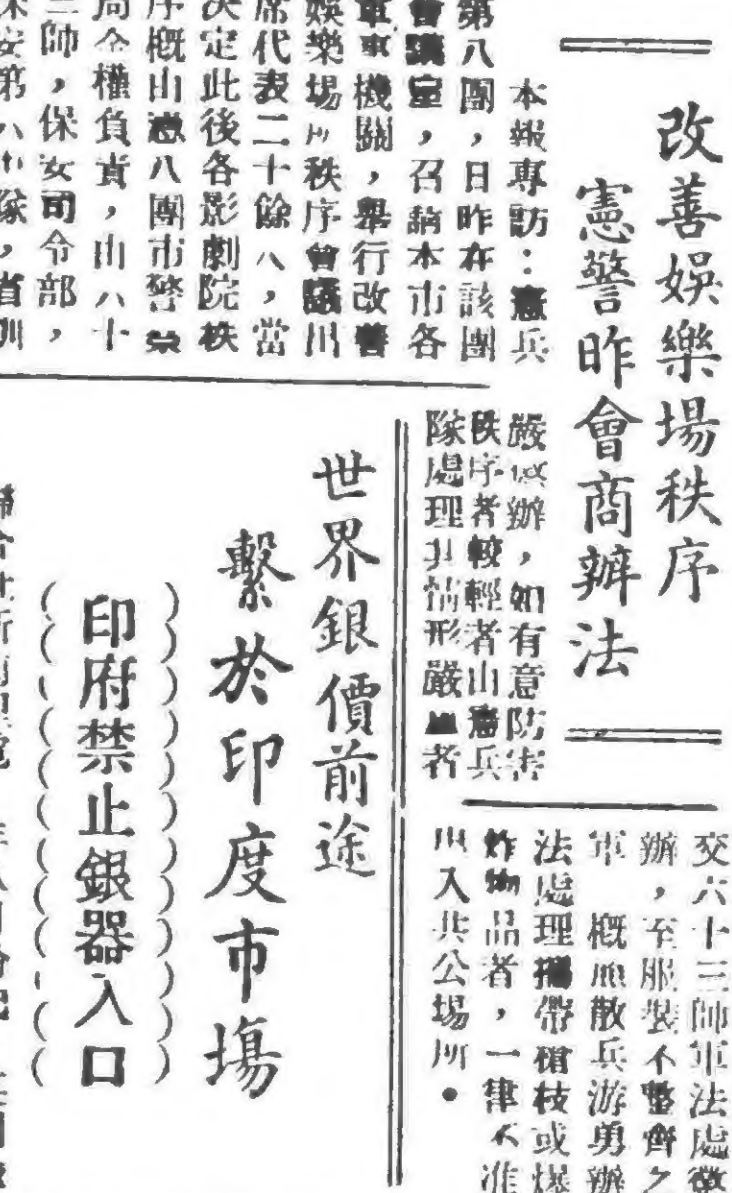 改善娛樂場秩序
憲警昨會商辦法
本報專訪：憲兵
第八團，日昨在該團
會議室，召請本市各
軍事機關，舉行改善
娛樂場所秩序會議出
席代表二十餘人，當
決定此後各影劇院秩
序概由憲八團市警
局全權負責，由八十
三師，保安司令部，
保安第八中隊，省訓
嚴懲辦，如有意防害
秩序者較輕者由憲兵
隊處理其情形嚴重者
交六十三師軍法處徵
辦，至服裝不整齊之
軍 概照散兵游勇辦
法處理攜帶槍枝或爆
炸物品者，一律不准
出入共公場所。
世界銀價前途
繫於印度市場
印府禁止銀器入口